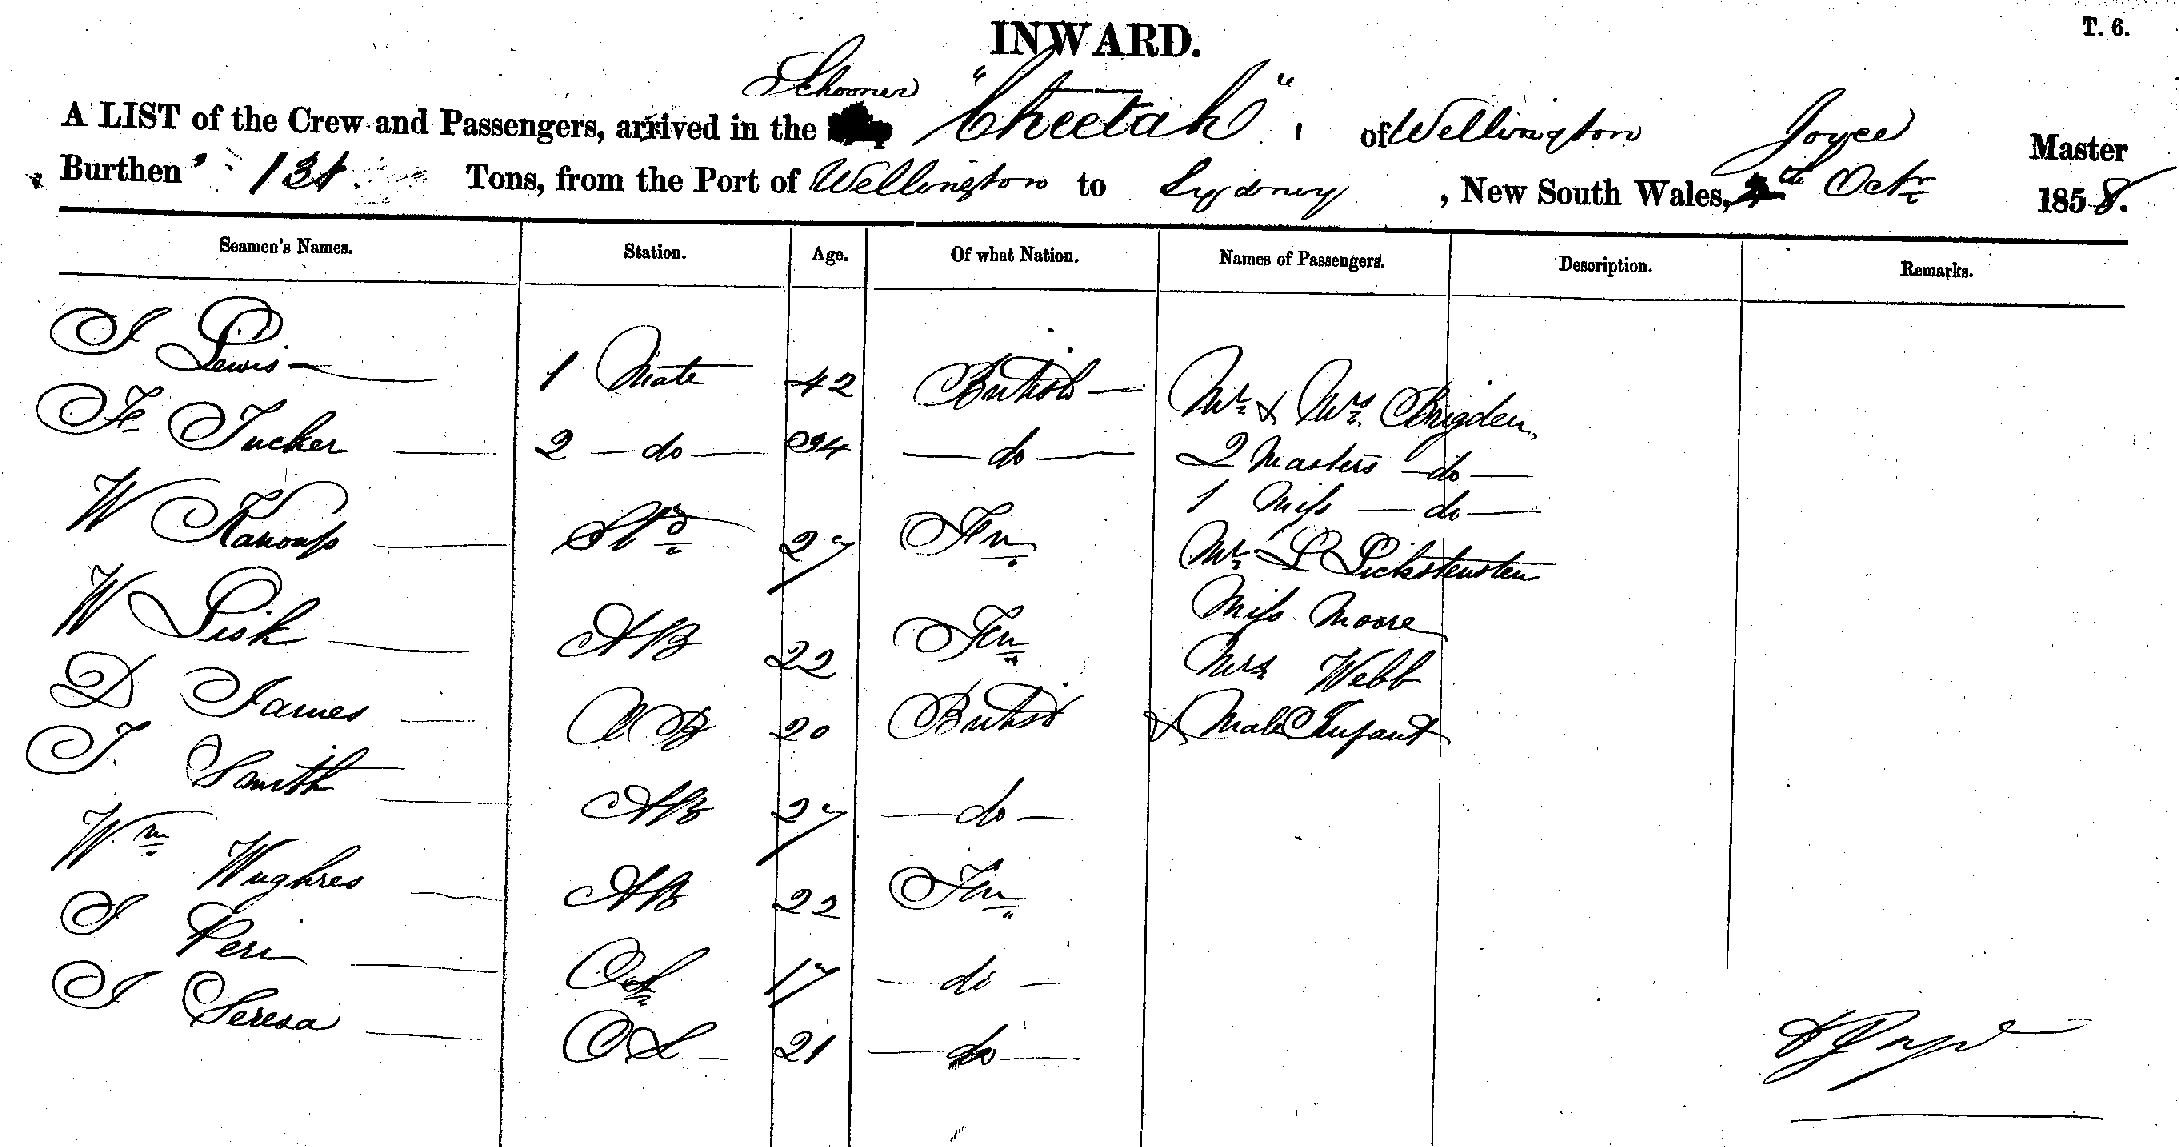 INWARD.
T. 6.
Schooner
A LIST of the Crew and Passengers, arrived in the "Cheetah", of Wellington Joyce Master
Burthen 131 Tons, from the Port of Wellington to Sydney, New South Wales, Octr 1858.
Seamen's Names. Station. Age. Of what Nation. Names of Passengers. Description. Remarks.
J Lewis — 1 Mate 42 British — Mr & Mrs Brigden
Tucker — 2 — do — 34 — do — 2 Masters — do —
1 Miss — do —
W — Std 27 Frn Mr L
W Lisk — AB 22 Frn Miss Moore
Mrs Webb
D James — AB 20 British & Male Infant
J. Smith — AB 27 — do —
Wm Wughres — AB 22 Frn
J Peri — OS 17 — do —
J Seresa — OS — 21 — do —